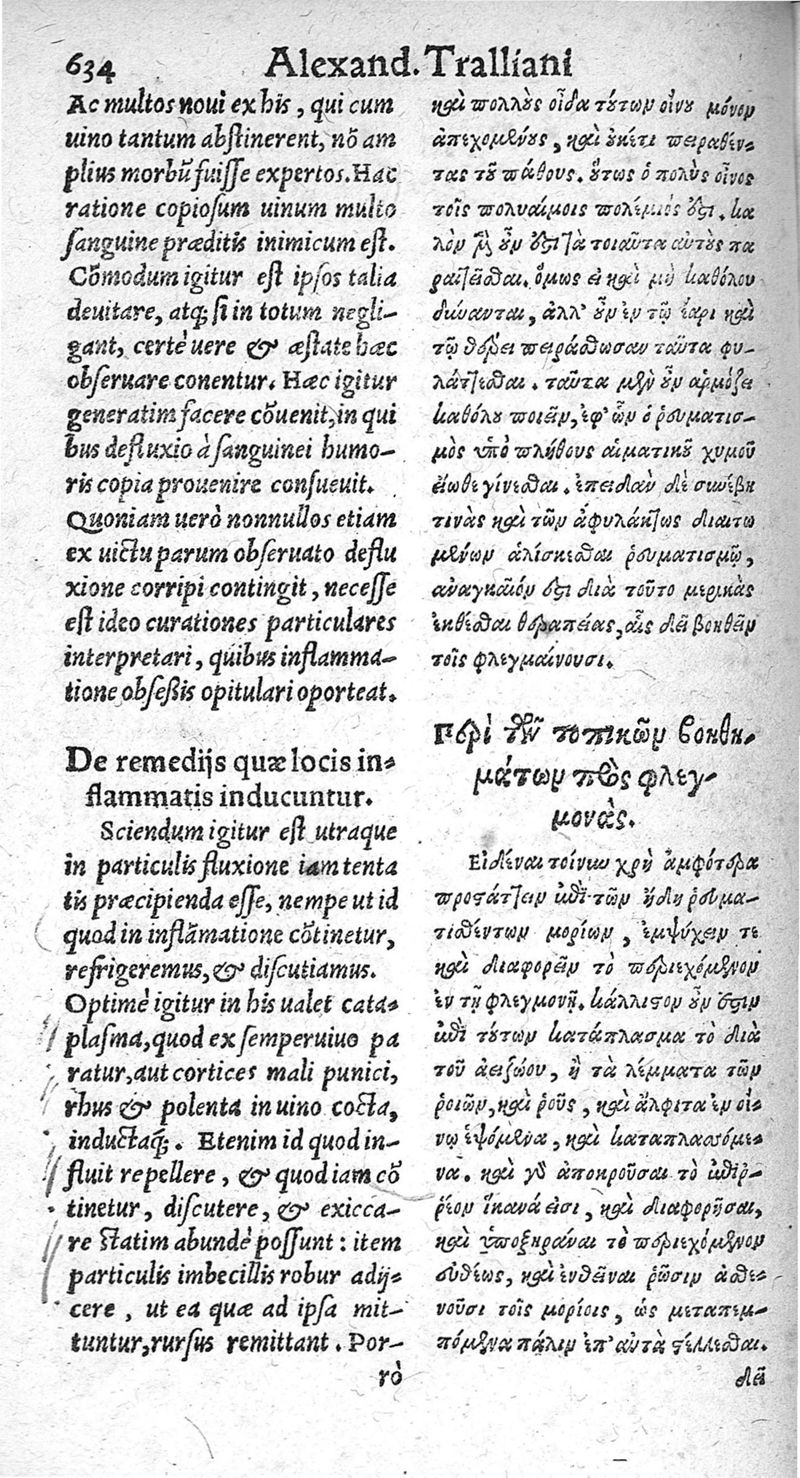 634
Alexand. Tralliani
Ac multos noui ex his, qui cum
uino tantum abstinerent, nō am
plius morbū fuisse expertos. Hac
ratione copiosum uinum multo
sanguine præditis inimicum est.
Cōmodum igitur est ipsos talia
deuitare, atq; si in totum negli-
gant, certè uere & æstate hæc
obseruare conentur. Hæc igitur
generatim facere cōuenit, in qui
bus defluxio à sanguinei humo-
ris copia prouenire consueuit.
Quoniam uerò nonnullos etiam
ex uictu parum obseruato deflu
xione corripi contingit, necesse
est ideo curationes particulares
interpretari, quibus inflamma-
tione obsessis opitulari oporteat.
De remedijs quæ locis in-
flammatis inducuntur.
Sciendum igitur est utraque
in particulis fluxione iam tenta
tis præcipienda esse, nempe ut id
quod in inflāmatione cōtinetur,
refrigeremus, & discutiamus.
Optimè igitur in his ualet cata-
plasma, quod ex semperuiuo pa
ratur, aut cortices mali punici,
rhus & polenta in uino cocta,
inductaq́;. Etenim id quod in-
fluit repellere, & quod iam cō
tinetur, discutere, & exicca-
re statim abundè possunt: item
particulis imbecillis robur adij-
cere, ut ea quæ ad ipsa mit-
tuntur, rursus remittant. Por-
rò
καὶ πολλοὺς οἶδα τούτων οἴνου μόνον
ἀπεχομένους, καὶ οὐκέτι πειραθέν-
τας τοῦ πάθους. οὕτως ὁ πολὺς οἶνος
τοῖς πολυαίμοις πολέμιός ἐστι. κα
λὸν μὲν οὖν ἐστι τὰ τοιαῦτα αὐτοὺς πα
ραιτεῖσθαι. ὅμως εἰ καὶ μὴ καθόλου
δύνανται, ἀλλ' οὖν ἐν τῷ ἔαρι καὶ
τῷ θέρει πειράσθωσαν ταῦτα φυ-
λάττεσθαι. ταῦτα μὲν οὖν ἁρμόζει
καθόλου ποιεῖν, ἐφ' ὧν ὁ ῥευματισ-
μὸς ὑπὸ πλήθους αἱματικοῦ χυμοῦ
εἴωθε γίνεσθαι. ἐπειδὰν δὲ συνέβη
τινὰς καὶ τῶν ἀφυλάκτως διαιτω
μένων ἁλίσκεσθαι ῥευματισμῷ,
ἀναγκαῖόν ἐστι διὰ τοῦτο μερικὰς
ἐκθέσθαι θεραπείας, αἷς δεῖ βοηθεῖν
τοῖς φλεγμαίνουσι.
Περὶ τῶν τοπικῶν βοηθη-
μάτων πρὸς φλεγ-
μονάς.
Εἰδέναι τοίνυν χρὴ ἀμφότερα
προστάττειν ἐπὶ τῶν ἤδη ῥευμα-
τισθέντων μορίων, ἐμψύχειν τε
καὶ διαφορεῖν τὸ περιεχόμενον
ἐν τῇ φλεγμονῇ. κάλλιστον οὖν ἐστιν
ἐπὶ τούτων κατάπλασμα τὸ διὰ
τοῦ ἀειζώου, ἢ τὰ λέμματα τῶν
ῥοιῶν, καὶ ῥοῦς, καὶ ἄλφιτα ἐν οἴ-
νῳ ἑψόμενα, καὶ καταπλασσόμε-
να. καὶ γὰρ ἀποκροῦσαι τὸ ἐπιῤ-
ῥέον ἱκανά εἰσι, καὶ διαφορῆσαι,
καὶ ὑποξηρᾶναι τὸ περιεχόμενον
εὐθέως, καὶ ἐνθεῖναι ῥῶσιν ἀσθε-
νοῦσι τοῖς μορίοις, ὡς μεταπεμ-
πόμενα πάλιν ἐπ' αὐτὰ στέλλεσθαι.
δεῖ